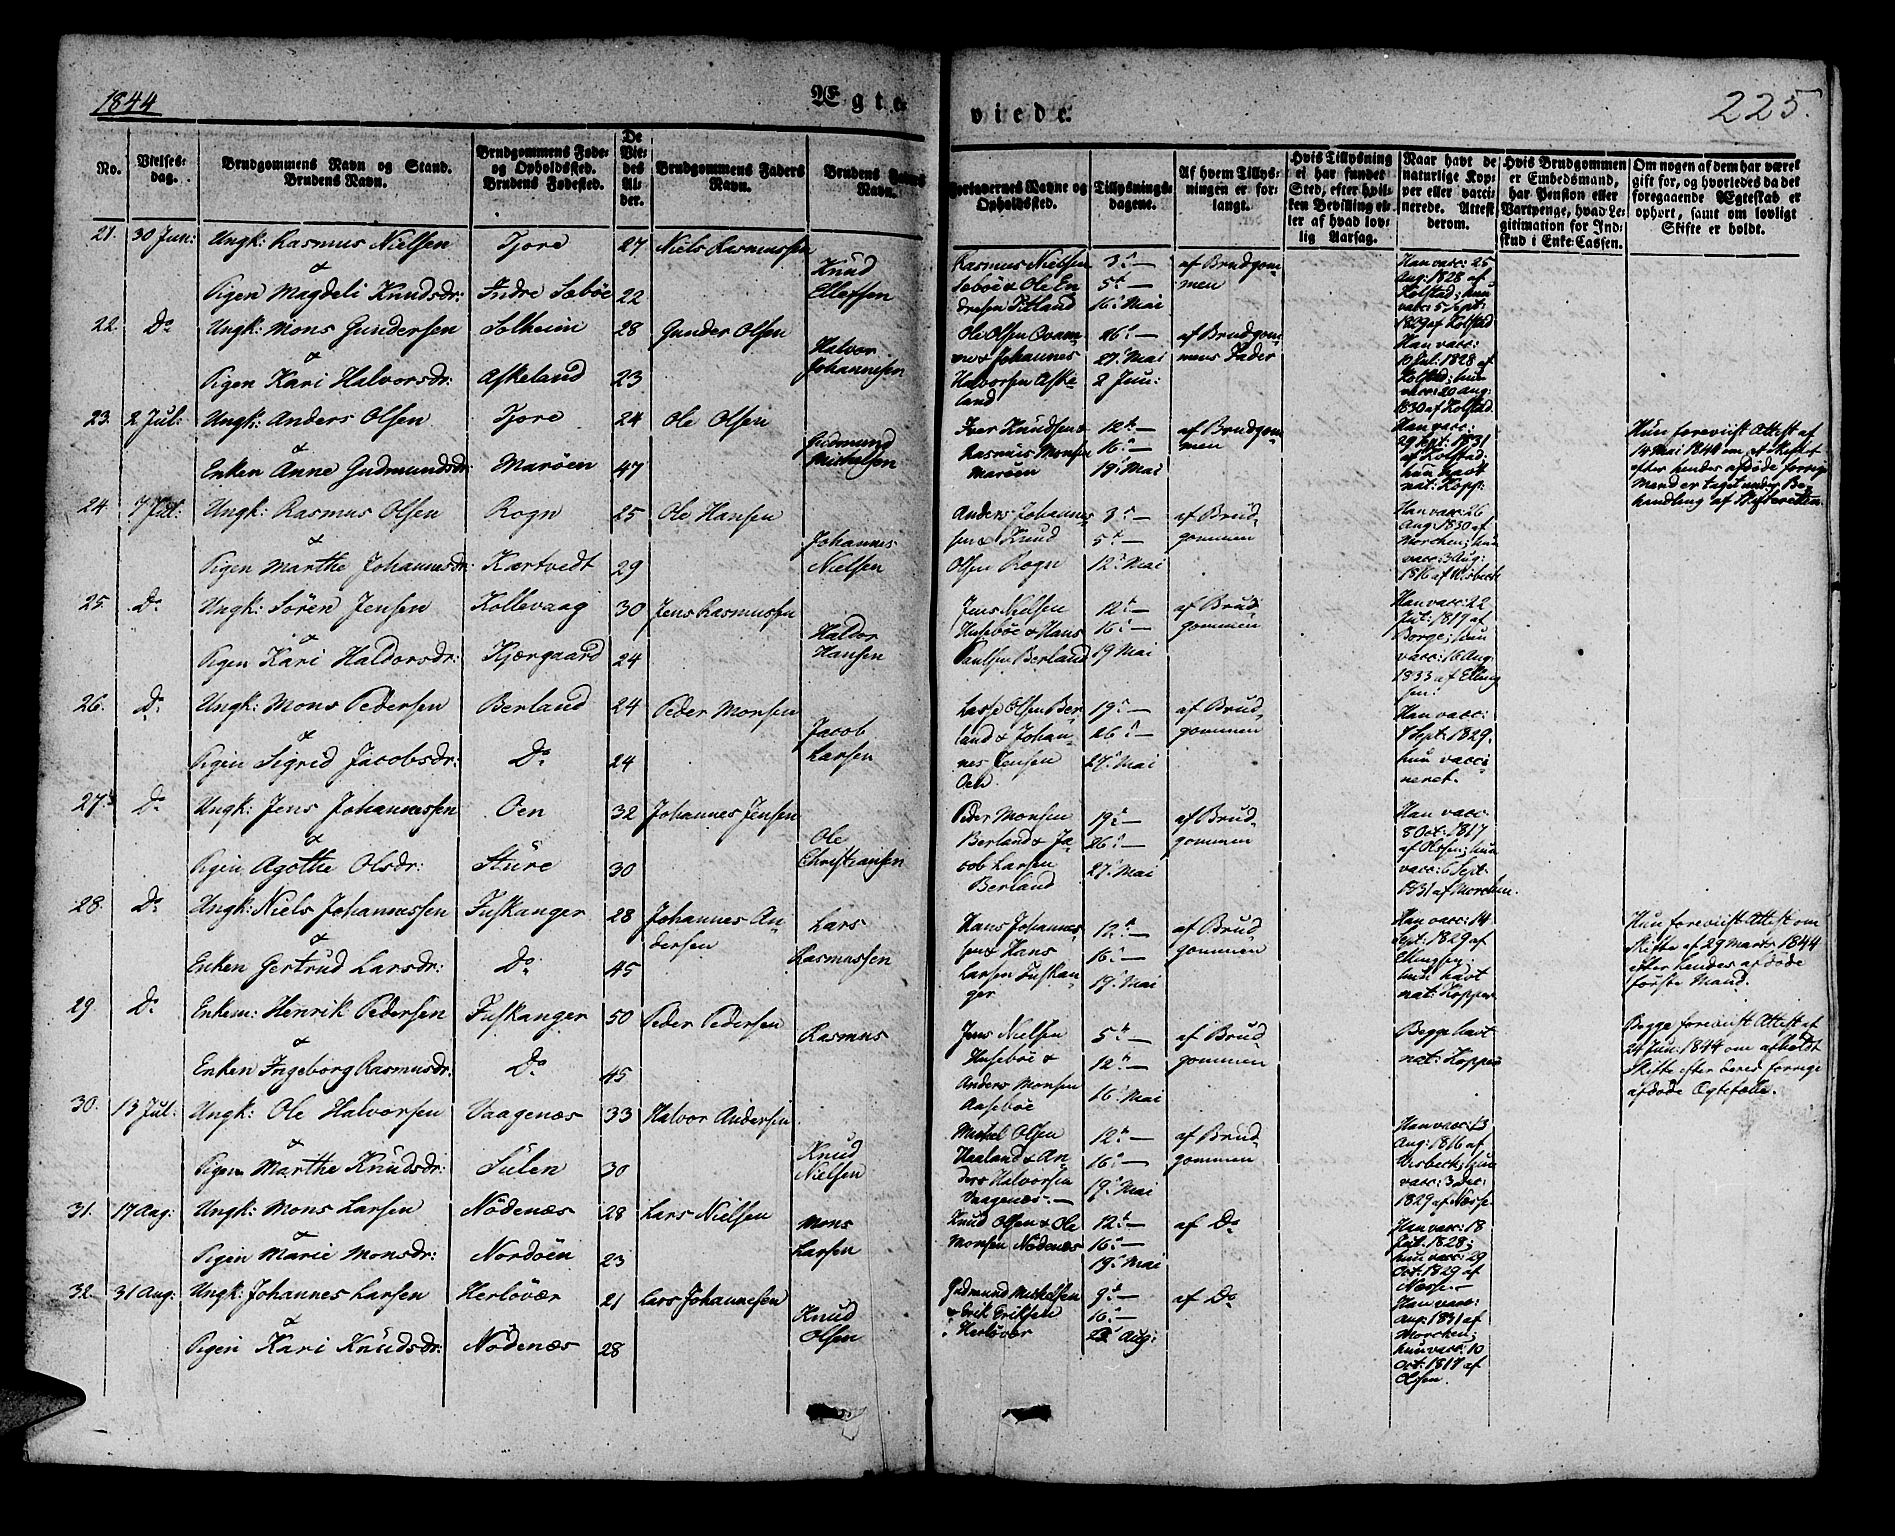 1844
Ægte-
viede.
225.
No.
Vielses-
dag.
Brudgommens Navn og Stand.
Brudens Navn.
Brudgommens Føde-
og Opholdssted.
Brudens Fødested.
De
Vie-
des
Al-
der.
Brudgommens Faders
Navn.
Brudens Faders
Navn.
Forlovernes Navne og
Opholdssted.
Tillysnings-
dagene.
Af hvem Tillys-
ningen er for-
langt.
Hvis Tillysning
ei har fundet
Sted, efter hvil-
ken Bevilling el-
ler af hvad lov-
lig Aarsag.
Naar havt de
naturlige Kop-
per eller vacci-
nerede. Attest
derom.
Hvis Brudgommen
er Embedsmand,
har Pension eller
Vartpenge, hvad Le-
gitimation for Ind-
skud i Enke-Cassen.
Om nogen af dem har været
gift før, og hvorledes da det
foregaaende Ægteskab er
ophørt, samt om lovligt
Skifte er holdt.
21. 30 Jun: Ungk: Rasmus Nielsen Tjore 27 Niels Rasmussen
&
Pigen Magdeli Knudsdr: Indre Sæbøe 22 Knud
Ellefsen
Rasmus Nielsen
Sebøe & Ole En
dresen Titland
3d —
5t —
16d Mai
af Brudgom
men
Han vacc: 25
Aug: 1828 af
Kolstad; hun
vacc: 5 Sept:
1829 af Kolstad
22. Do Ungk: Mons Gundersen Solheim 28 Gunder Olsen
&
Pigen Kari Halvorsdr: Askeland 23 Halvor
Johannesen
Ole Olsen Qvam
me & Johannes
Halvorsen Aske-
land
26d —
27d Mai
2 Jun:
af Brudgom
mens Fader
Han vacc:
Jul: 1828 af
Kolstad; hun
vacc: 20 Aug:
1830 af Kolstad
23. 2 Jul: Ungk: Anders Olsen Tjore 24 Ole Olsen
&
Enken Anne Gudmundsdr: Marøen 47 Gudmund
Michelsen
Iver Knudsen &
Rasmus Monsen
Marøen
12t —
16d —
19d Mai
af Brudgom
men
Han vacc:
29 Sept: 1831
af Kolstad:
hun havt
nat: Kopp:
Hun foreviist Attest af
14 Mai 1844 om at Skiftet
efter hendes afdøde forrige
Mand er taget under Be-
handling af Skifteretten.
24. 7 Jul: Ungk: Rasmus Olsen Rogn 25 Ole Hansen
&
Pigen Marthe Johannesdr: Kartvedt 29 Johannes
Nielsen
Anders Johannes-
sen & Knud
Olsen Rogn
3d —
5t —
12d Mai
af Brud-
gommen
Han vacc: 26
Aug: 1830 af
Morchen; hun
vacc: 3 Aug:
1816 af Wisbeck
25. Do Ungk: Søren Jensen Kollevaag 30 Jens Rasmussen
&
Pigen Kari Haldorsdr: Kjærgaard 24 Haldor
Hansen
Jens Nielsen
Husebøe & Hans
Paulsen Berland
12t —
16d —
19 Mai
af Brud-
gommen
Han vacc: 22
Jul: 1819 af
Borge; hun
vacc: 16 Aug:
1833 af Elling
sen.
26. Do Ungk: Mons Pedersen Berland 24 Peder Monsen
&
Pigen Sigrid Jacobsdr: Do 24 Jacob
Larsen
Lasse Olsen Ber-
land & Johan-
nes Jensen
Oen
19d —
26d —
27d Mai
af Brud-
gommen
Han vacc:
Sept: 1829.
hun vacci
neret.
27. Do Ungk: Jens Johannessen Oen 32 Johannes Jensen
&
Pigen Agothe Olsdr: Sture 30 Ole
Christiansen
Peder Monsen
Berland & Ja-
cob Larsen
Berland
19d —
26d —
27d Mai
af Brud-
gommen
Han vacc:
8 Oct: 1817
af Olssen; hun
vacc: 6 Sept
1831 af Morchen.
28. Do Ungk: Niels Johannessen Fuskanger 28 Johannes An-
dersen
&
Enken Gertrud Larsdr: Do 45 Lars
Rasmussen
Hans Johannes-
sen & Hans
Larsen Fuskan-
ger
12t —
16d —
19d Mai
af Brud
gommen
Han vacc: 14
Sept: 1829 af
Ellingsen;
hun havt
nat: Kopper
Hun foreviist Attest om
Skifte af 29 Marts 1844
efter hendes afdøde
første Mand.
29. Do Enkem: Henrik Pedersen Fuskanger 50 Peder Pedersen
&
Enken Ingeborg Rasmusdr: Do 45 Rasmus
Jens Nielsen
Husebøe &
Anders Monsen
Aasebøe
5t —
12t —
16d Mai
af Brud
gommen
Begge havt
nat: Kopper
Begge foreviist Attest af
24 Jun: 1844 om afholdt
Skifte efter deres forrige
afdøde Ægtefolle.
30. 13 Jul: Ungk: Ole Halvorsen Vaagenæs 33 Halvor Andersen
&
Pigen Marthe Knudsdr: Sulen 30 Knud
Nielsen
Mikel Olsen
Haaland & An-
ders Halvorsen
Vaagenæs. —
12t —
16d —
19d Mai
af Brud-
gommen
Han vacc: 13
Aug: 1816 af
Visbeck; hun
vacc: 3 Dec:
1829 af Næsse
31. 17 Aug: Ungk: Mons Larsen Nødenæs 28 Lars Nielsen
&
Pigen Marie Monsdr: Nordøen 23 Mons
Larsen
Knud Olsen & Ole
Monsen Nødenæs
12t —
16d —
19d Mai
af Do
Han vacc: 18
Jul: 1828;
hun vacc: 29
Oct: 1829 af
Næsse. —
32. 31 Aug: Ungk: Johannes Larsen Herløvær 21 Lars Johannesen
&
Pigen Kari Knudsdr: Nødenæs 28 Knud
Olsen
Gudmund Mikelsen
& Erik Eriksen
Herløver
9d —
16d —
Aug:
af Do
Han vacc:
Aug: 1831 af
Morchen;
hun vacc: 10
Oct: 1817 af
Olssen.